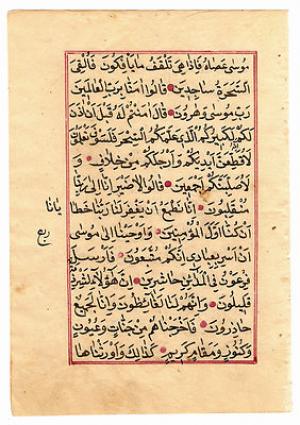 موسى عصاه فاذا هي تلقف ما يافكون فالقى
السحرة ساجدين قالوا امنا برب العالمين
رب موسى وهرون قال امنتم له قبل ان اذن
لكم انه لكبيركم الذي علمكم السحر فلسوف تعلمون
لاقطعن ايديكم وارجلكم من خلاف و
لاصلبنكم اجمعين قالوا لا ضير انا الى ربنا
منقلبون انا نطمع ان يغفر لنا ربنا خطا يانا
ان كنا اول المؤمنين واوحينا الى موسى
ربع
ان اسر بعبادي انكم متبعون فارسل
فرعون في المدائن حاشرين ان هؤلاء لشرذمة
قليلون وانهم لنا لغائظون وانا لجميع
حاذرون فاخرجناهم من جنات وعيون
وكنوز ومقام كريم كذلك واورثناها